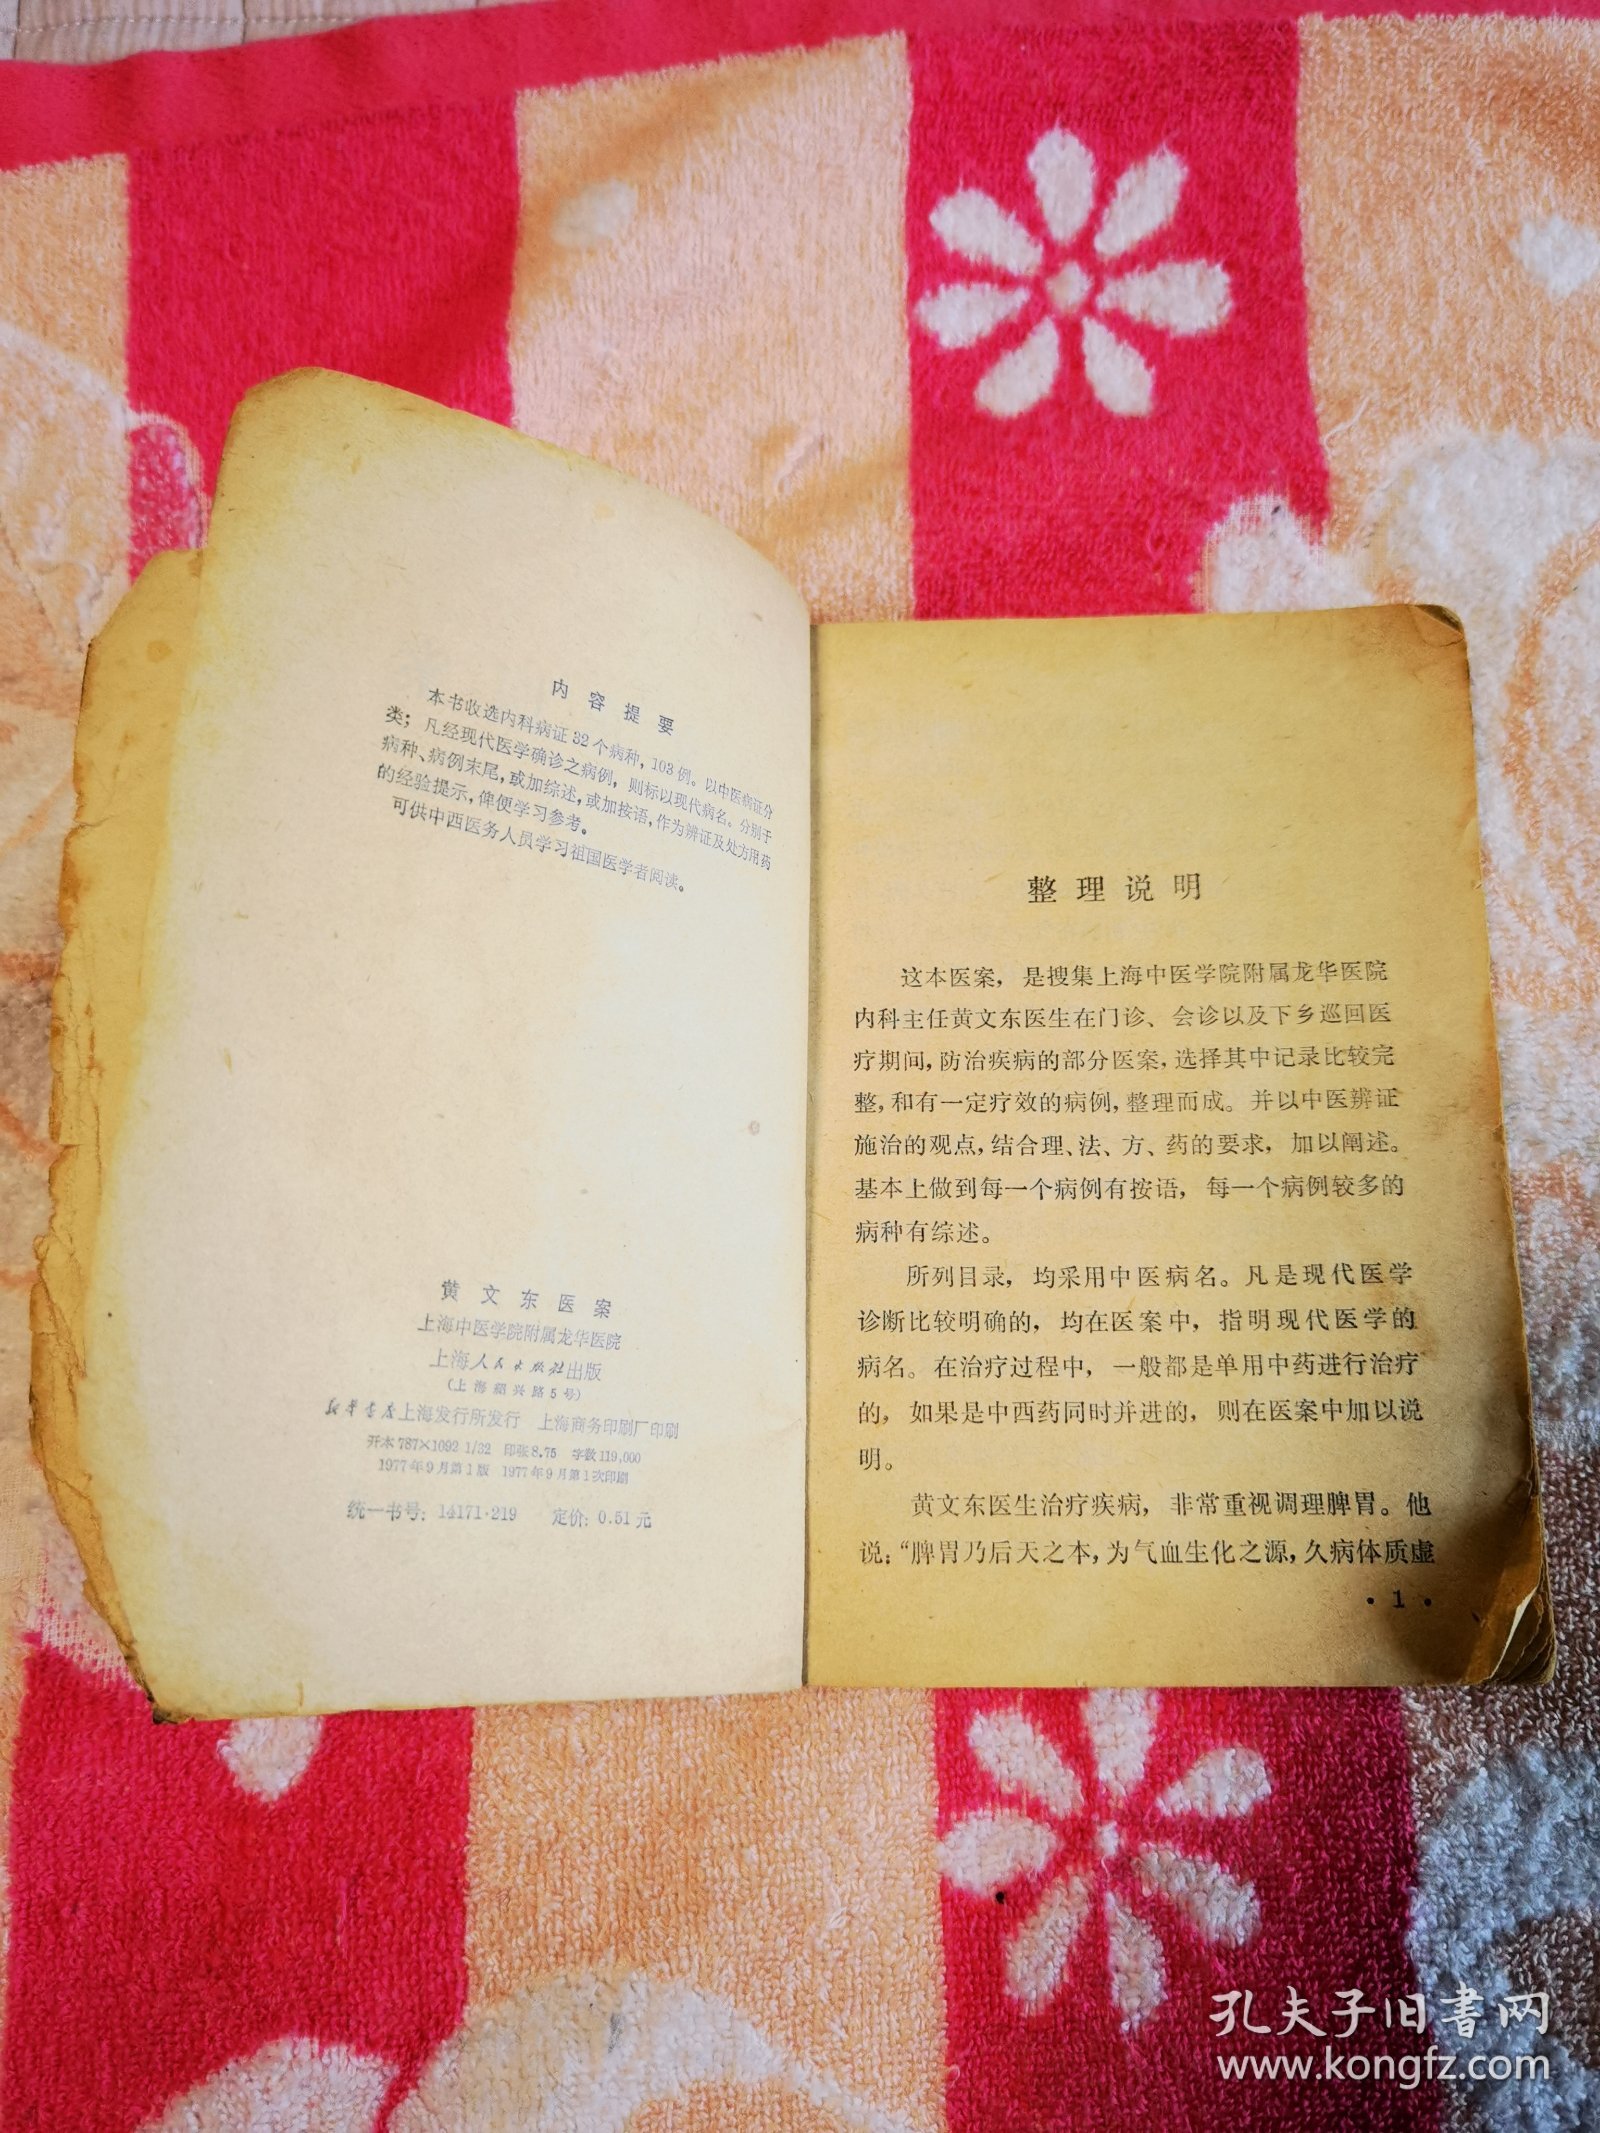 内容提要
本书收选内科病证32个病种，103例。以中医病证分
类；凡经现代医学确诊之病例，则标以现代病名。分别于
病种、病例末尾，或加综述，或加按语，作为辨证及处方用药
的经验提示，俾便学习参考。
可供中西医务人员学习祖国医学者阅读。
黄文东医案
上海中医学院附属龙华医院
上海人民出版社出版
（上海绍兴路5号）
新华书店上海发行所发行 上海商务印刷厂印刷
开本787×1092 1/32 印张8.75 字数119,000
1977年9月第1版 1977年9月第1次印刷
统一书号：14171·219 定价：0.51元
整理说明
这本医案，是搜集上海中医学院附属龙华医院
内科主任黄文东医生在门诊、会诊以及下乡巡回医
疗期间，防治疾病的部分医案，选择其中记录比较完
整，和有一定疗效的病例，整理而成。并以中医辨证
施治的观点，结合理、法、方、药的要求，加以阐述。
基本上做到每一个病例有按语，每一个病例较多的
病种有综述。
所列目录，均采用中医病名。凡是现代医学
诊断比较明确的，均在医案中，指明现代医学的
病名。在治疗过程中，一般都是单用中药进行治疗
的，如果是中西药同时并进的，则在医案中加以说
明。
黄文东医生治疗疾病，非常重视调理脾胃。他
说：“脾胃乃后天之本，为气血生化之源，久病体质虚
·1·
孔夫子旧书网
www.kongfz.com